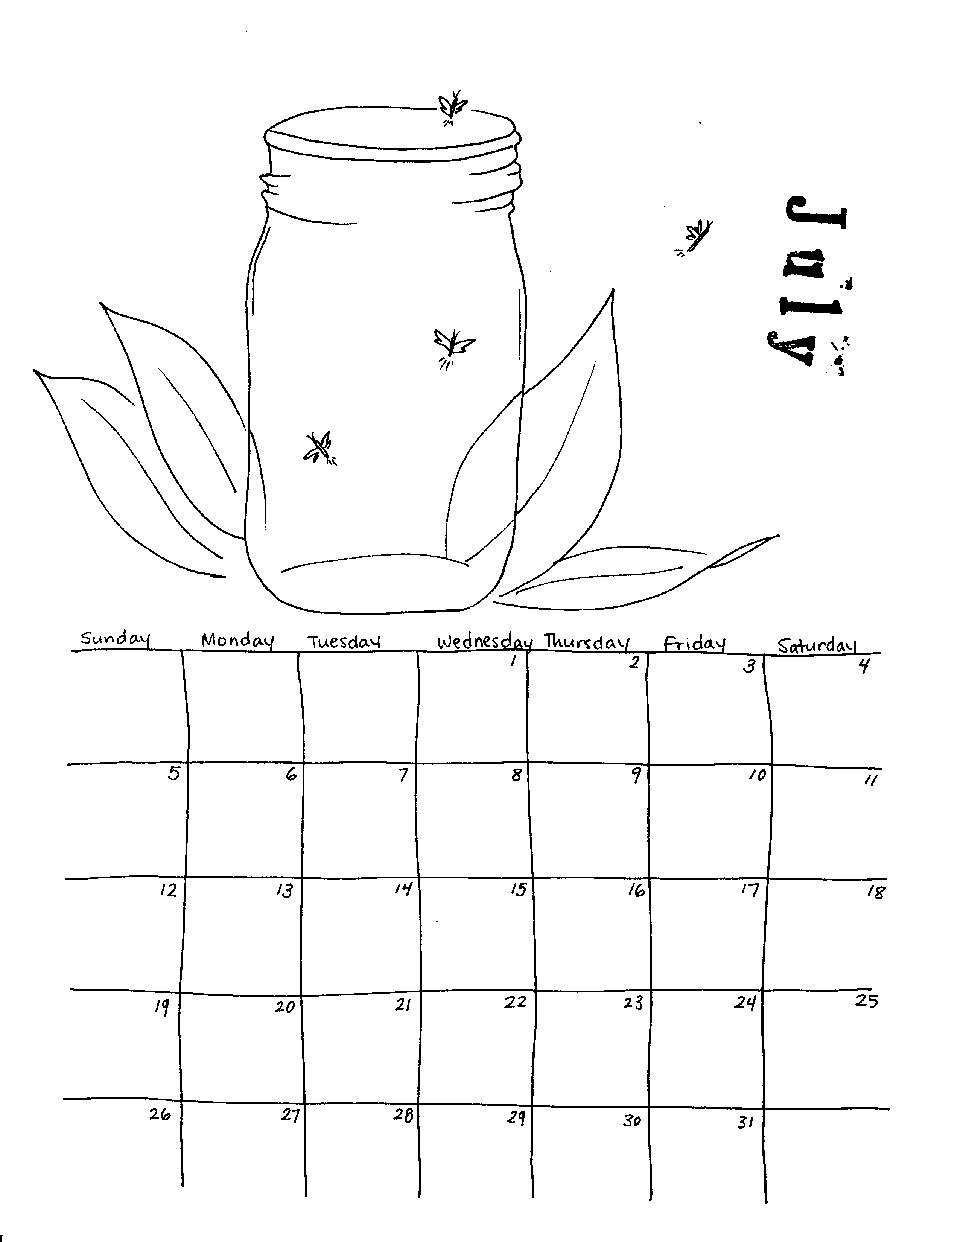 July
Sunday Monday Tuesday Wednesday Thursday Friday Saturday
1 2 3 4
5 6 7 8 9 10 11
12 13 14 15 16 17 18
19 20 21 22 23 24 25
26 27 28 29 30 31